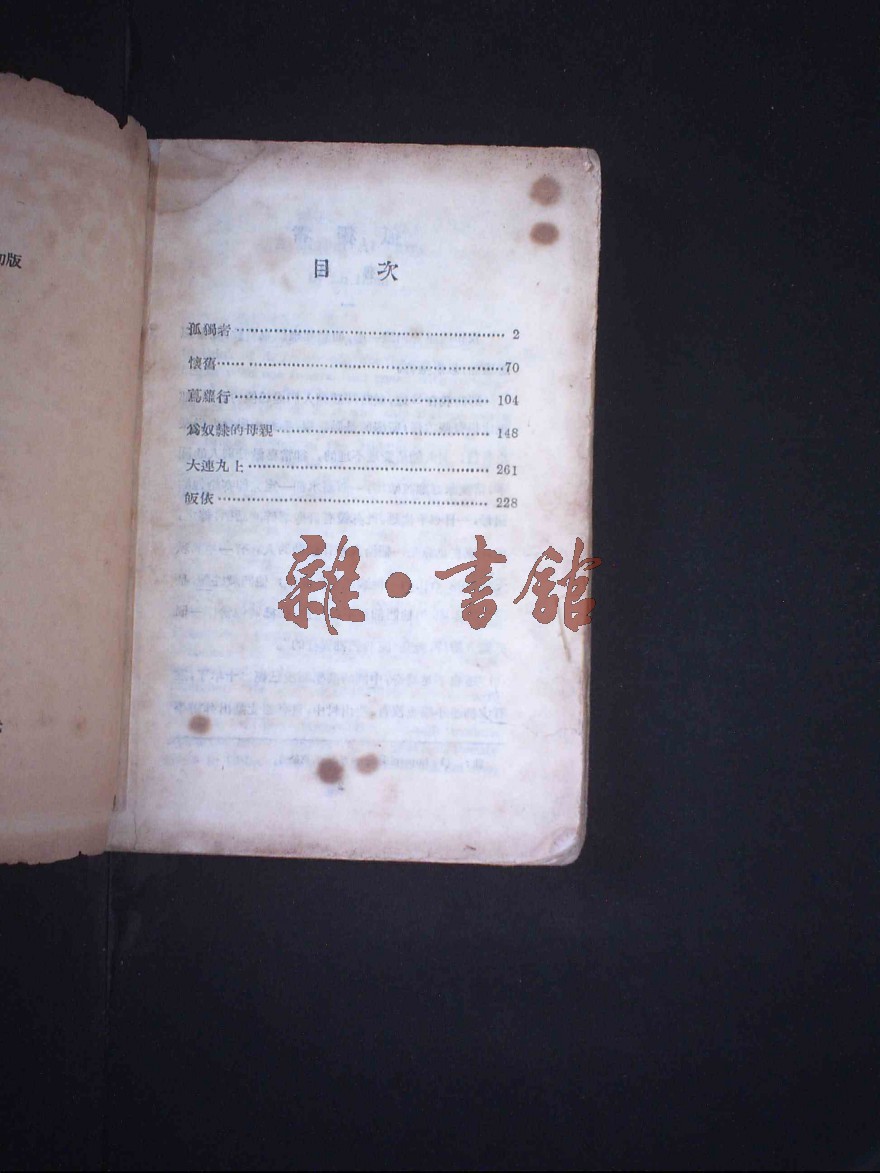 初版
目 次
孤獨者 2
懷舊 70
蔦蘿行 104
爲奴隸的母親 148
大連丸上 261
皈依 228
雜·書館